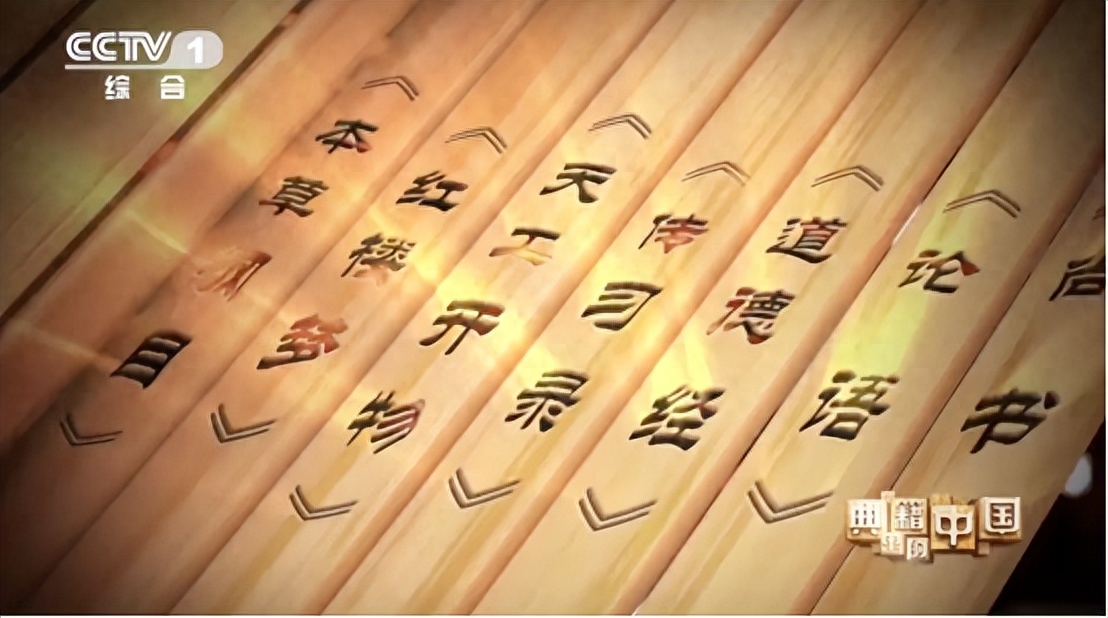 CCTV 1
综合
尚书
《论语》
《道德经》
《传习录》
《天工开物》
《红楼梦》
《本草纲目》
典籍里的中国